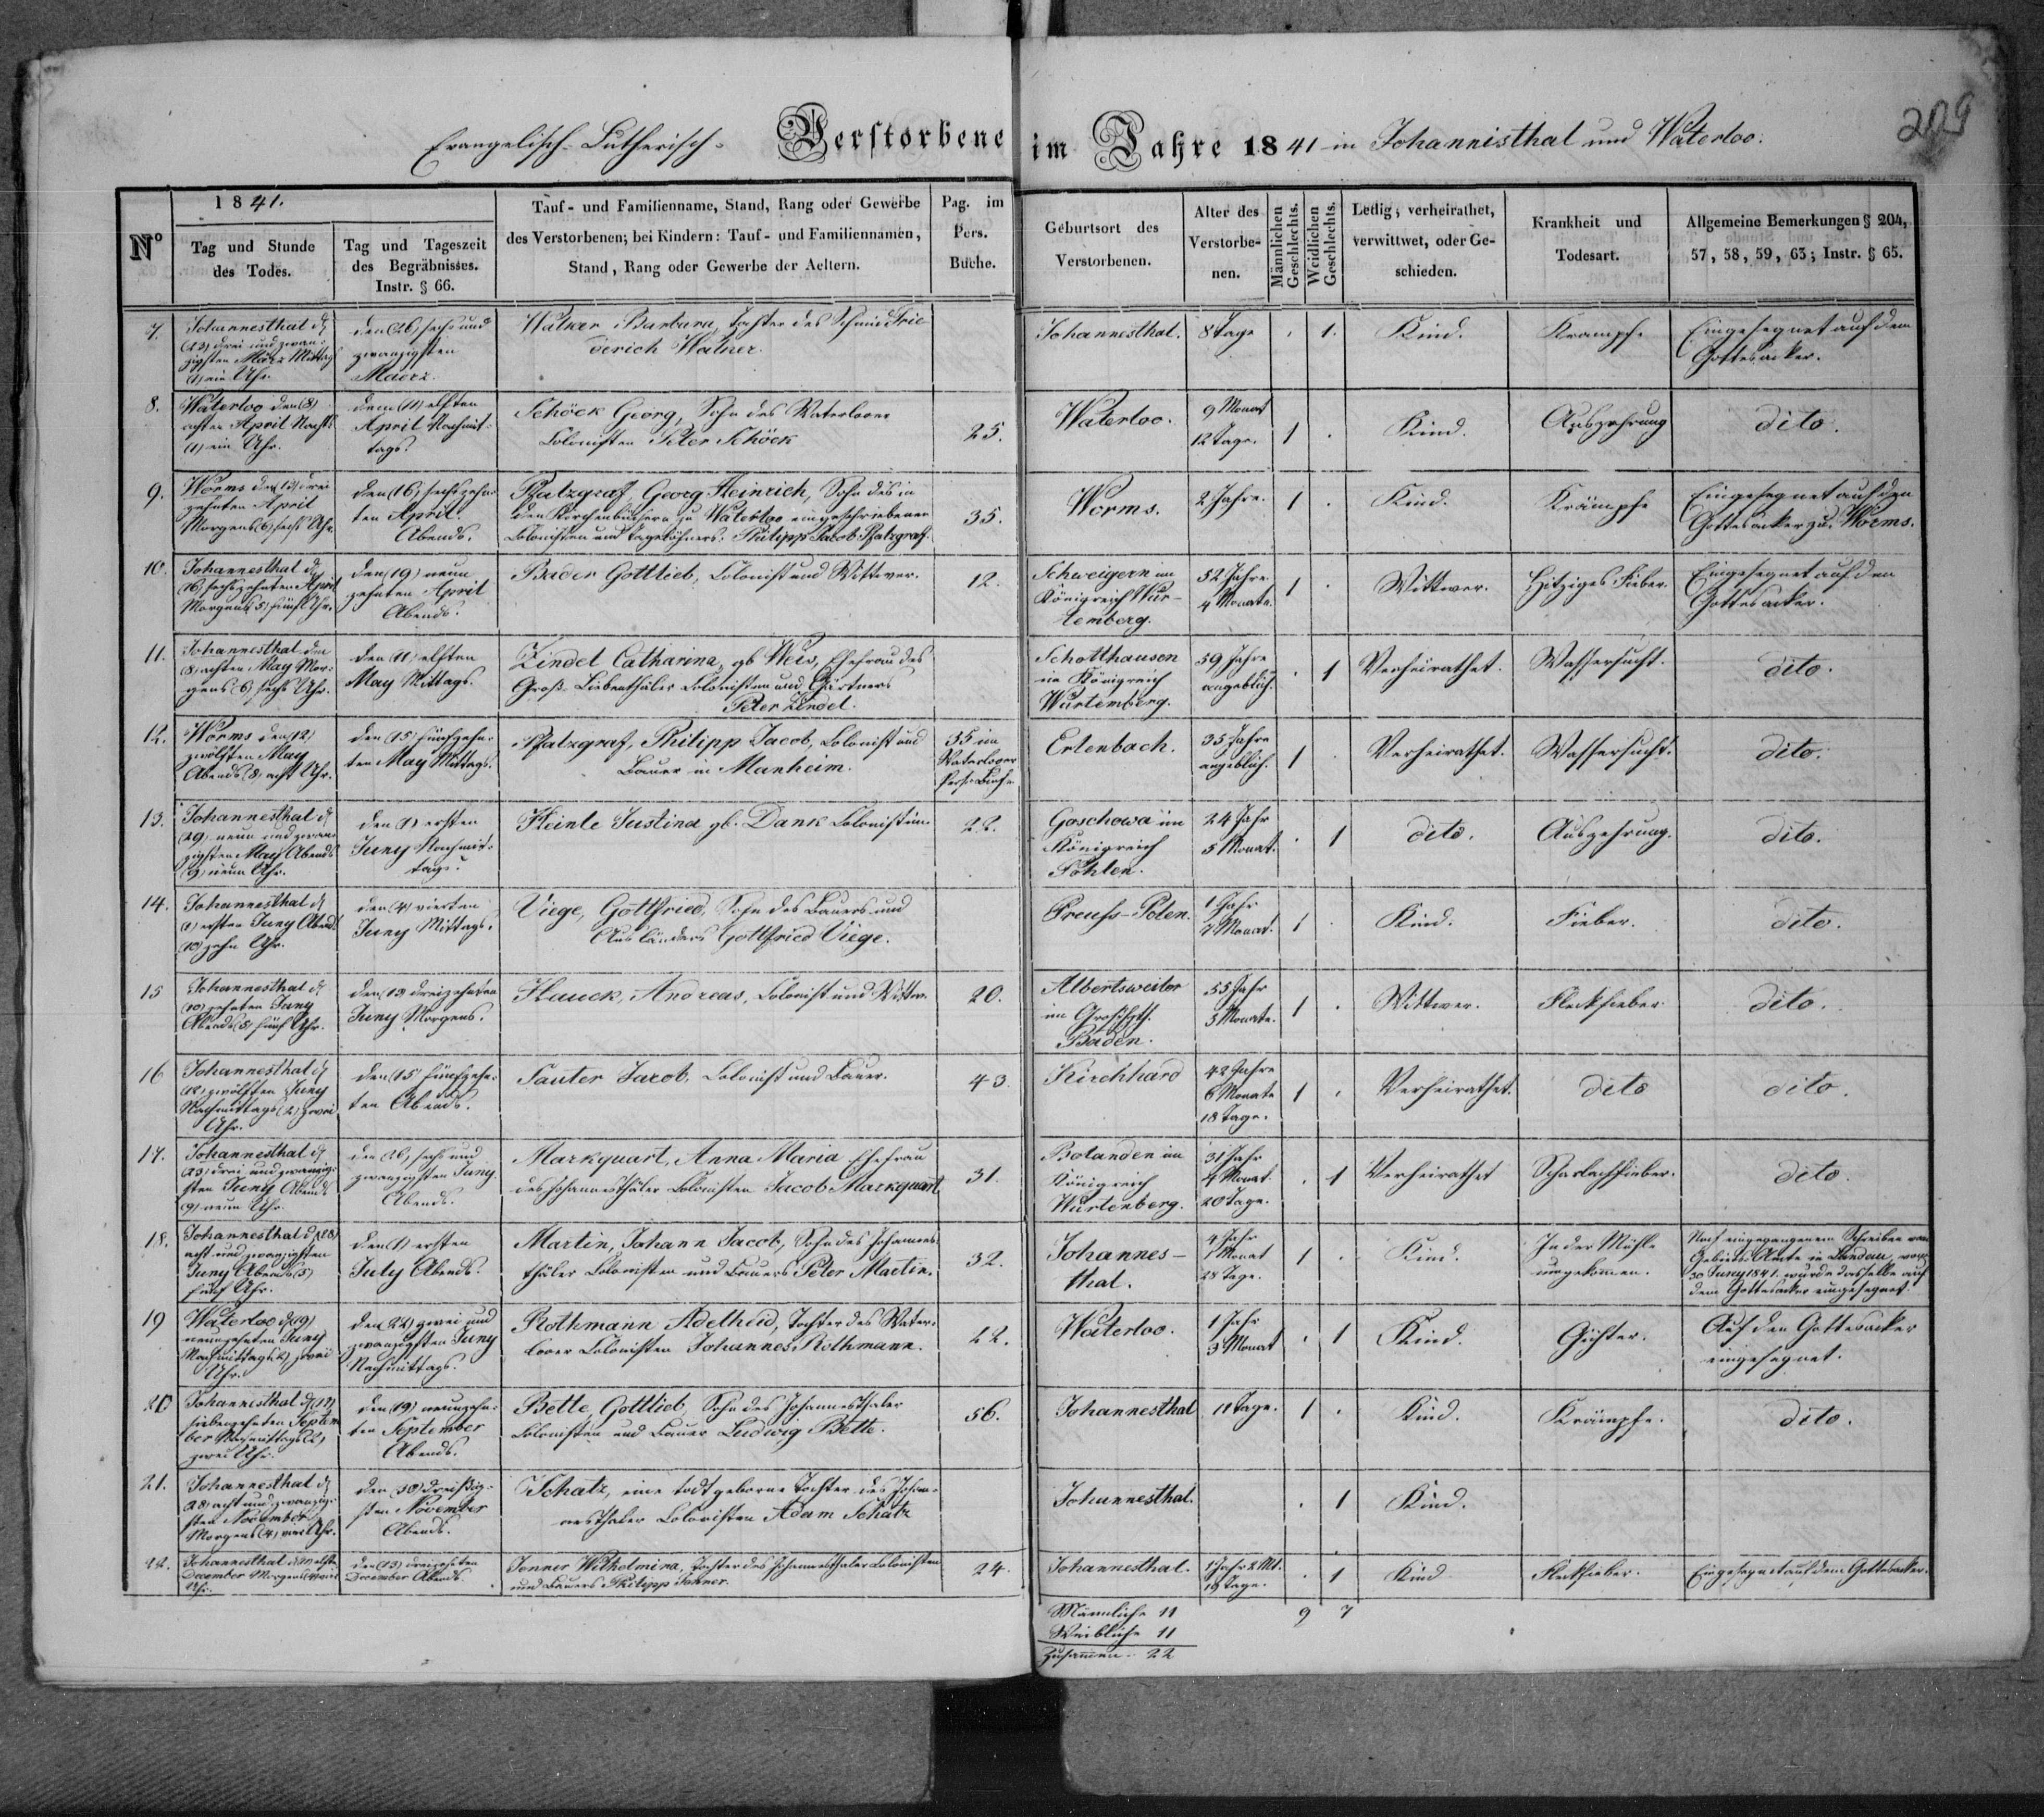 209
Evangelisch-Lutherisch- Verstorbene im Jahre 1841 in Johannisthal und Waterloo.
No
1841.
Tag und Stunde
des Todes.
Tag und Tageszeit
des Begräbnisses.
Instr. § 66.
Tauf- und Familienname, Stand, Rang oder Gewerbe
des Verstorbenen; bei Kindern: Tauf- und Familiennamen,
Stand, Rang oder Gewerbe der Aeltern.
Pag. im
Pers.
Buche.
Geburtsort des
Verstorbenen.
Alter des
Verstorbe-
nen.
Männlichen
Geschlechts.
Weidlichen
Geschlechts.
Ledig, verheirathet,
verwittwet, oder Ge-
schieden.
Krankheit und
Todesart.
Allgemeine Bemerkungen § 204,
57, 58, 59, 63; Instr. § 65.
7.
Johannesthal d
(23) drei und zwan-
zigsten März Mittag
(1) ein Uhr.
den (26) sechs und
zwanzigsten
Maerz.
Walker Barbara, Tochter des Schmid Frie
derich Walker.
Johannesthal.
8 Tage
1.
Kind.
Krampfe
Eingesegnet auf dem
Gottesacker.
8.
Waterloo den (8)
achten April Nachts
(1) ein Uhr.
den (11) elften
April Nachmit-
tags.
Schöck Georg, Sohn des Waterlooer
Colonisten Peter Schöck
25.
Waterloo.
9 Monat
12 Tage.
1
Kind.
Auszehrung
dito.
9.
Worms den (13) drei
zehnten April
Morgens (6) sechs Uhr.
den (16) sechszehn-
ten April.
Abends.
Pfalzgraf, Georg Heinrich, Sohn des in
den Kirchenbüchern zu Waterloo eingeschriebenen
Colonisten und Tagelöhners: Philipp Jacob Pfalzgraf.
35.
Worms.
2 Jahre.
1
Kind.
Krämpfe
Eingesegnet auf den
Gottesacker zu Worms.
10.
Johannesthal d
(16) sechszehnten April
Morgens (5) fünf Uhr.
den (19) neun
zehnten April
Abends.
Bader Gottlieb, Colonist und Wittwer.
12.
Schweigern im
Königreich Wur-
temberg.
52 Jahre
4 Monate.
1
Wittwer.
Hitziges Fieber.
Eingesegnet auf den
Gottesacker.
11.
Johannesthal den
(8) achten May Mor-
gens (6) sechs Uhr.
den (11) elften
May Mittags.
Zindel Catharina, gb Weis, Ehefrau des
Groß-Liebenthäler Colonisten und Gärtners
Peter Zindel.
Schotthausen
im Königreich
Wurtemberg.
59 Jahre
angeblich.
1
Verheirathet.
Wassersucht.
dito.
12.
Worms den (12)
zwölften May
Abends (8) acht Uhr.
den (15) fünfzehn-
ten May Mittags.
Pfalzgraf, Philipp Jacob, Colonist und
Bauer in Manheim.
35 im
Waterlooer
Pers. Buche
Erlenbach.
35 Jahre
angeblich.
1
Verheirathet.
Wassersucht.
dito.
13.
Johannesthal d
(29) neun und zwan-
zigsten May Abends
(9) neun Uhr.
den (1) ersten
Juny Nachmit-
tags.
Heinle Justina gb. Dank Colonistin.
22.
Goschowa im
Königreich
Pohlen.
24 Jahr
5 Monat.
1
dito.
Auszehrung.
dito.
14.
Johannesthal d
(1) ersten Juny Abends
(10) zehn Uhr.
den (4) vierten
Juny Mittags.
Viege, Gottfried, Sohn des Bauers und
Ausländers Gottfried Viege.
Preufs-Polen.
1 Jahr
7 Monat.
1
Kind.
Fieber.
dito.
15
Johannesthal d
(10) zehnten Juny
Abends (5) fünf Uhr.
den (13) dreizehnten
Juny Morgens.
Hauck, Andreas, Colonist und Wittwer.
20.
Albertsweiler
im
Baden.
55 Jahr
3 Monate.
1
Wittwer.
Fleckfieber.
dito.
16
Johannesthal d
(12) zwölften Juny
Nachmittags (2) zwei
Uhr.
den (15) fünfzehn-
ten Abends.
Sauter Jacob, Colonist und Bauer.
43.
Kirchhard
42 Jahre
6 Monate
18 Tage.
1
Verheirathet.
dito
dito.
17.
Johannesthal d
(23) drei und zwanzig-
sten Juny Abends
(9) neun Uhr.
den (26) sechs und
zwanzigsten Juny
Abends.
Markquart, Anna Maria Ehefrau
des Johannesthäler Colonisten Jacob Markquart
31.
Bolanden im
Königreich
Wurtenberg.
31 Jahr
4 Monat.
20 Tage.
1
Verheirathet
Scharlachfieber.
dito.
18.
Johannesthal d (28)
acht und zwanzigsten
Juny Abends (5)
fünf Uhr.
den (1) ersten
July Abends.
Martin, Johann Jacob, Sohn des Johannes-
thäler Colonisten und Bauers Peter Martin.
32.
Johannes-
thal.
4 Jahr
1 Monat
28 Tage.
1
Kind.
In der Mühle
umgekommen.
Nach eingegangenem Schreiben vom
Gebiets-Amte in Landau, vom
30 Juny 1841. wurde dasselbe auf
dem Gottesacker eingesegnet.
19
Waterloo d (19)
neunzehnten Juny
Nachmittags (2) zwei
Uhr.
den (22) zwei und
zwanzigsten Juny
Nachmittags.
Rothmann Adelheid, Tochter des Water-
looer Colonisten Johannes Rothmann.
22.
Waterloo.
1 Jahr
3 Monat
1
Kind.
Gichter.
Auf den Gottesacker
eingesegnet.
20
Johannesthal d (17)
siebenzehnten Septem
ber Nachmittags (2)
zwei Uhr.
den (19) neunzehn-
ten September
Abends.
Bette, Gottlieb, Sohn des Johannesthaler
Colonisten und Bauer Ludwig Bette.
56.
Johannesthal
11 Tage.
1
Kind.
Krämpfe.
dito.
21.
Johannesthal d
(28) acht und zwanzig-
sten November
Morgens (4) vier Uhr.
den (30) dreißig-
sten November
Abends.
Schatz, eine todt geborne Tochter des Johan-
nesthaler Colonisten Adam Schatz
Johannesthal.
1
Kind.
22.
Johannesthal d (11) elften
December Morgens (4) vier
Uhr.
den (13) dreizehnten
December Abends.
Jonner Wilhelmina, Tochter des Johannesthaler Colonisten
und Bauers Philipp Jonner.
24.
Johannesthal.
1 Jahr 2 Mt.
19 Tage.
1
Kind
Fleckfieber.
Eingesegnet auf dem Gottesacker.
Männliche 11
9 7
Weibliche 11
Zusammen 22